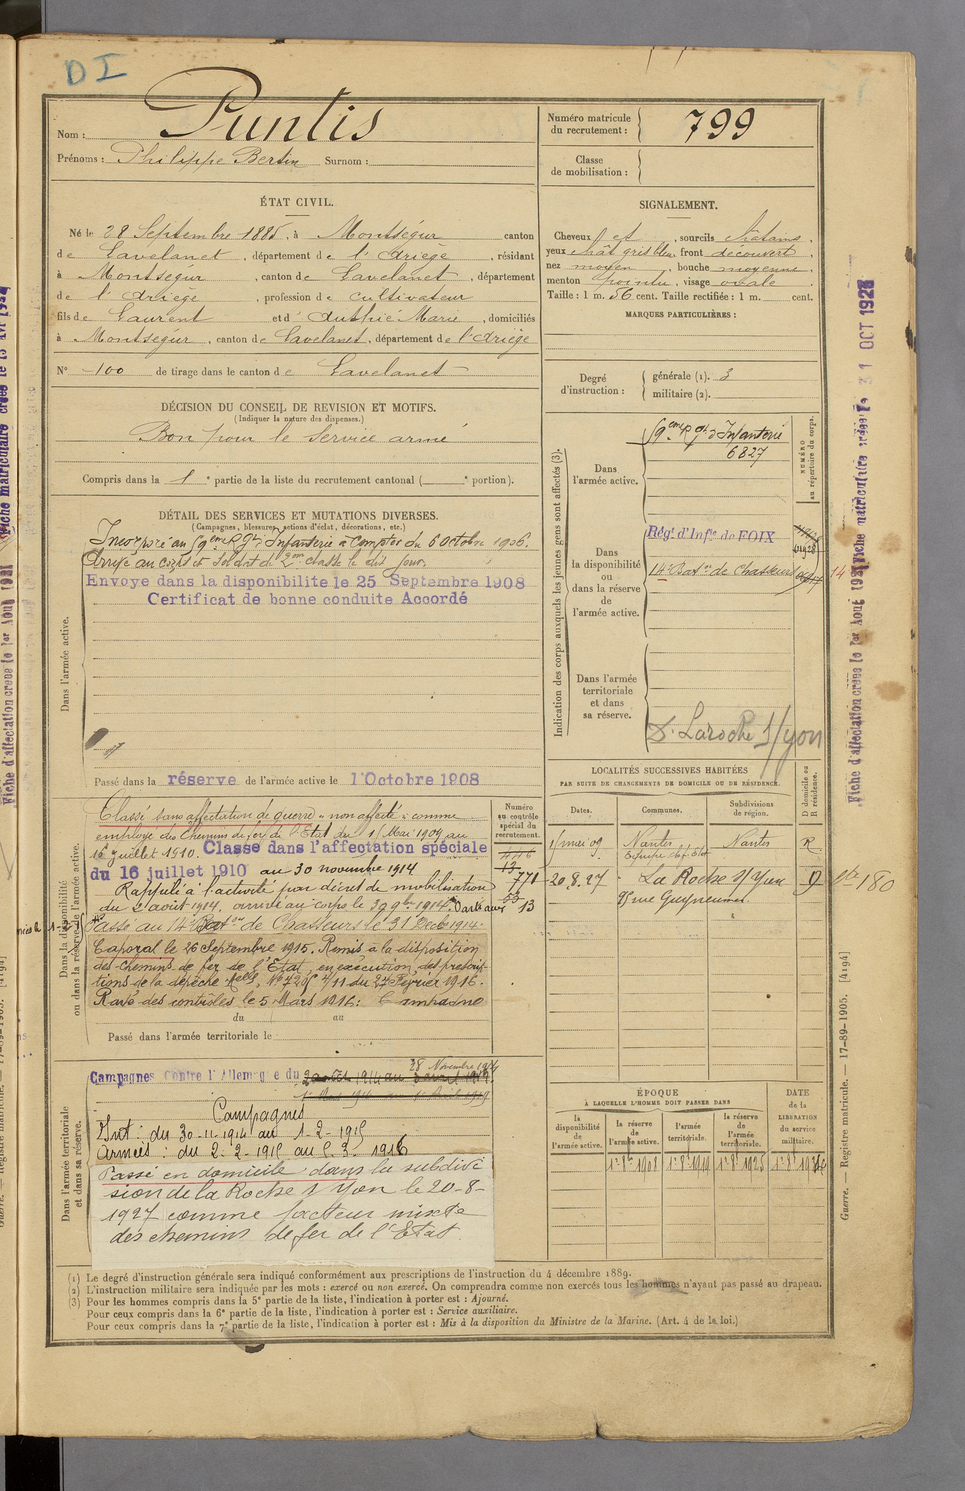 DI
Nom : Puntis
Prénoms : Philippe Bertin Surnom :
Numéro matricule du recrutement : 799
Classe de mobilisation :
ÉTAT CIVIL.
Né le 28 Septembre 1885, à Montségur canton
de Lavelanet, département de l'Ariège, résidant
à Montségur, canton de Lavelanet, département
de l'Ariège, profession de cultivateur
fils de Laurent et d'Authié Marie, domiciliés
à Montségur, canton de Lavelanet, département de l'Ariège
N° 100 de tirage dans le canton de Lavelanet
SIGNALEMENT.
Cheveux et, sourcils châtains,
yeux chât gris bleu, front découvert,
nez moyen, bouche moyenne,
menton pointu, visage ovale.
Taille : 1 m. 56 cent. Taille rectifiée : 1 m. cent.
MARQUES PARTICULIÈRES :
Degré d'instruction : générale (1). 3
militaire (2).
DÉCISION DU CONSEIL DE REVISION ET MOTIFS.
(Indiquer la nature des dispenses.)
Bon pour le service armé
Compris dans la 1e partie de la liste du recrutement cantonal ( e portion).
DÉTAIL DES SERVICES ET MUTATIONS DIVERSES.
(Campagnes, blessures, actions d'éclat, décorations, etc.)
Dans l'armée active.
Incorporé au 59ème Rgt Infanterie à compter du 6 Octobre 1906.
Arrivé au corps et soldat de 2ème classe le dit jour.
Envoyé dans la disponibilité le 25 Septembre 1908
Certificat de bonne conduite Accordé
Passé dans la réserve de l'armée active le 1 Octobre 1908
Indication des corps auxquels les jeunes gens sont affectés (3).
NUMÉRO au répertoire du corps.
Dans l'armée active.
59ème Rgt d'Infanterie
6827
Dans la disponibilité ou dans la réserve de l'armée active.
Régt d'Infie de FOIX
14e Baton de Chasseurs
Dans l'armée territoriale et dans sa réserve.
S. Laroche s/yon
Dans la disponibilité ou dans la réserve de l'armée active.
Numéro au contrôle spécial du recrutement.
Classé sans affectation de guerre "non affecté" comme
employé des Chemins de fer de l'Etat du 1 Mai 1909 au
15 juillet 1910. Classé dans l'affectation spéciale
du 16 juillet 1910 au 30 novembre 1914
Rappelé à l'activité par décret de mobilisation
du 2 août 1914, arrivé au corps le 30 9bre 1914.
Passé au 14e Baton de Chasseurs le 31 Decbre 1914.
Caporal le 26 Septembre 1915. Remis à la disposition
des chemins de fer de l'Etat, en exécution des prescrip-
tions de la dépêche Melle du 27 Février 1916.
Rayé des contrôles le 5 Mars 1916 : Campagne
du au
Passé dans l'armée territoriale le
771
13
LOCALITÉS SUCCESSIVES HABITÉES
PAR SUITE DE CHANGEMENTS DE DOMICILE OU DE RÉSIDENCE.
Dates. Communes. Subdivisions de région. D domicile ou R résidence.
1 mai 09 Nantes Nantes R
20.8.27 La Roche s/yon D
180
Dans l'armée territoriale et dans sa réserve.
Campagnes Contre l'Allemagne du
Campagnes
Int : du 30-11-1914 au 1-2-1915
Armées : du 2-2-1915 au 5.3.1916
Passé en domicile dans la subdivi
sion de la Roche s Yon le 20-8-
1927 comme facteur mixte
des chemins de fer de l'Etat.
ÉPOQUE
À LAQUELLE L'HOMME DOIT PASSER DANS
la disponibilité de l'armée active.
la réserve de l'armée active.
l'armée territoriale.
la réserve de l'armée territoriale.
DATE de la LIBÉRATION du service militaire.
1er 8bre 1908
1er 8bre 1919
1er 8bre 1925
(1) Le degré d'instruction générale sera indiqué conformément aux prescriptions de l'instruction du 4 décembre 1889.
(2) L'instruction militaire sera indiquée par les mots : exercé ou non exercé. On comprendra comme non exercés tous les hommes n'ayant pas passé au drapeau.
(3) Pour les hommes compris dans la 5e partie de la liste, l'indication à porter est : Ajourné.
Pour ceux compris dans la 6e partie de la liste, l'indication à porter est : Service auxiliaire.
Pour ceux compris dans la 7e partie de la liste, l'indication à porter est : Mis à la disposition du Ministre de la Marine. (Art. 4 de la loi.)
Fiche d'affectation créée le 1er Août 1931
Fiche matriculaire créée le 31 OCT 1928
Guerre. — Registre matricule. — 17-89-1905. [4194]